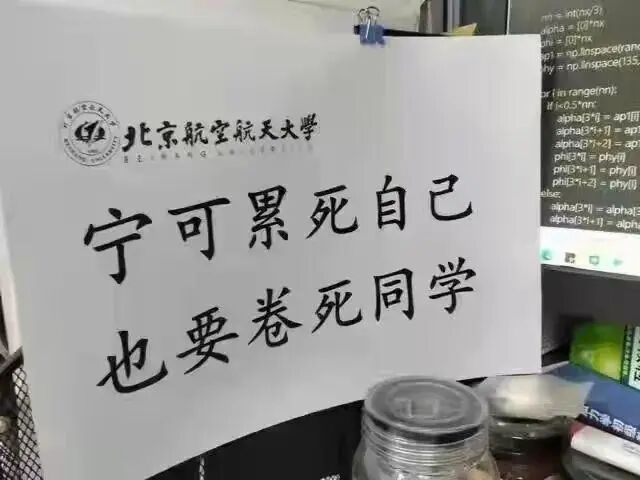 北京航空航天大學
宁可累死自己
也要卷死同学
nn = int(nx/3)
alpha = [0]*nx
phi = [0]*nx
ap1 = np.linspace(
phy = np.linspace(135,
for i in range(nn):
if i<0.5*nn:
alpha[3*i] = ap1[i]
alpha[3*i+1] = ap1[i]
alpha[3*i+2] = ap1[i]
phi[3*i] = phy[i]
phi[3*i+1] = phy[i]
phi[3*i+2] = phy[i]
else:
alpha[3*i] = alpha[3*
alpha[3*i+1] = alpha
力学初